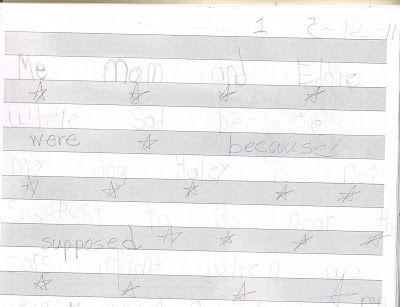 1 2-12-11
Me Mom and Eddie
Whale Sad because
were because
my dog Haley is not
Suappost to do near th
supposed
cars infront when we
ran